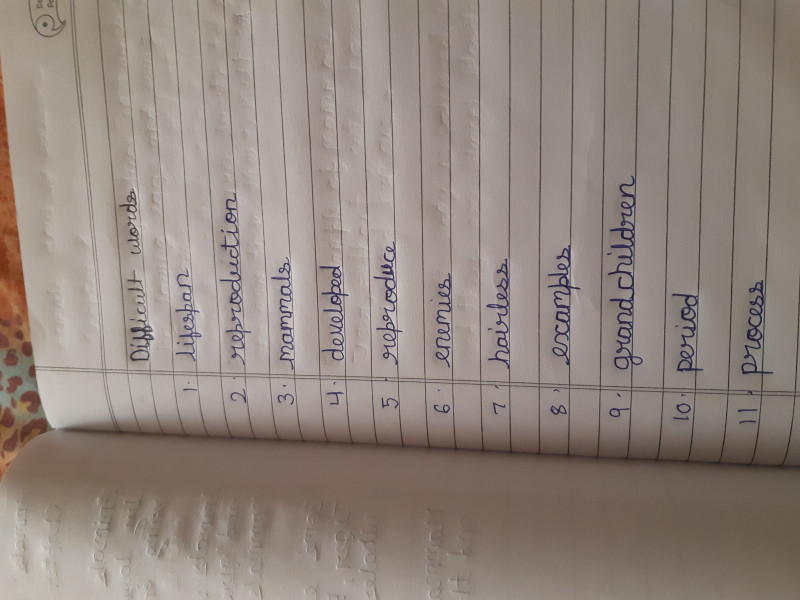 Difficult words
1. lifespan
2. reproduction
3. mammals
4. developed
5. reproduce
6. enemies
7. hairless
8. examples
9. grandchildren
10. period
11. process